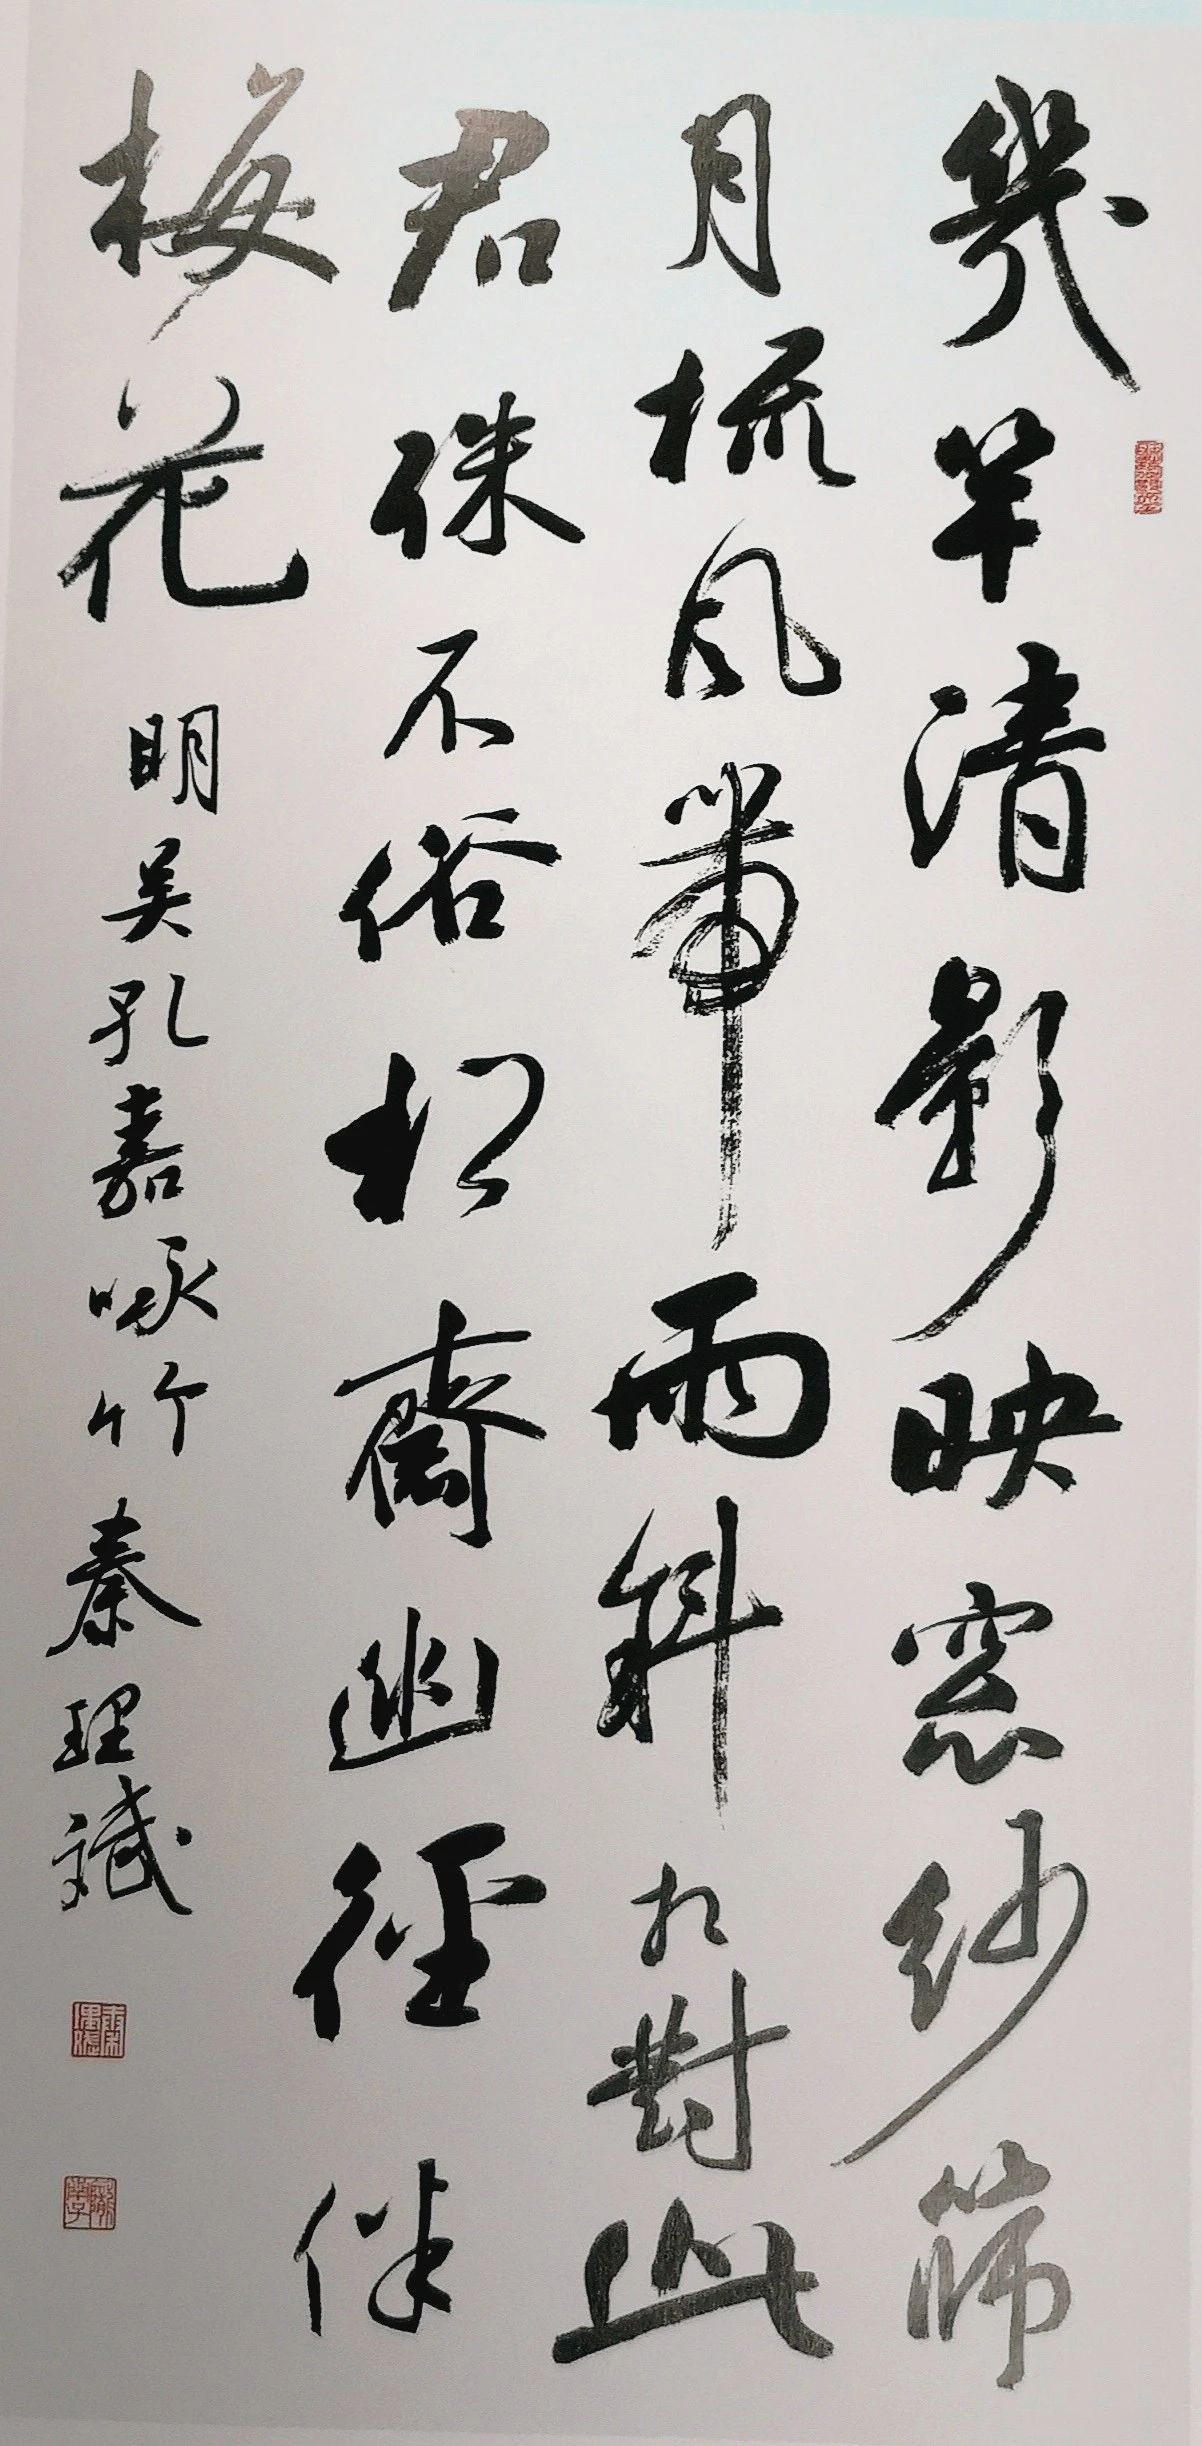 幾竿清影映窓紗筛
月梳风帶雨斜相對此
君殊不俗松齋幽徑伴
梅花 明吴孔嘉咏竹 秦理斌